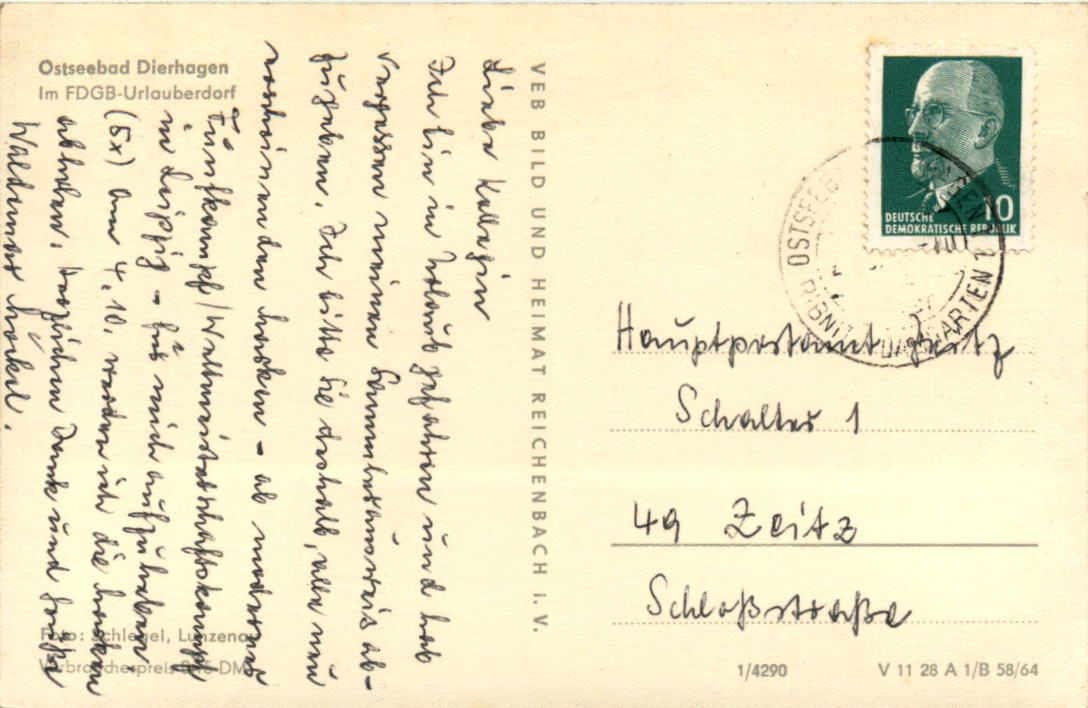 Ostseebad Dierhagen
Im FDGB-Urlauberdorf
Liebe Kollegin
Ich bin in Urlaub gefahren und hab
vergessen meinen Sammlerausweis ab-
zugeben. Ich bitte Sie deshalb, alle nun
erscheinenden Marken - ab moderner
Fünfkampf/Weltmeisterschaftskampf
in Leipzig - für mich aufzuheben
(5x) Am 4.10. werden ich die Marken
abholen. Herzlichen Dank und Grüße
Waldemar
Foto: Schlegel, Lunzenau
Verbraucherpreis 0,15 DM
VEB BILD UND HEIMAT REICHENBACH I. V.
DEUTSCHE
DEMOKRATISCHE REPUBLIK
10
OSTSEEB
RIBNITZ DAMGARTEN 1
Hauptpostamt Zeitz
Schalter 1
49 Zeitz
Schloßstraße
1/4290
V 11 28 A 1/B 58/64